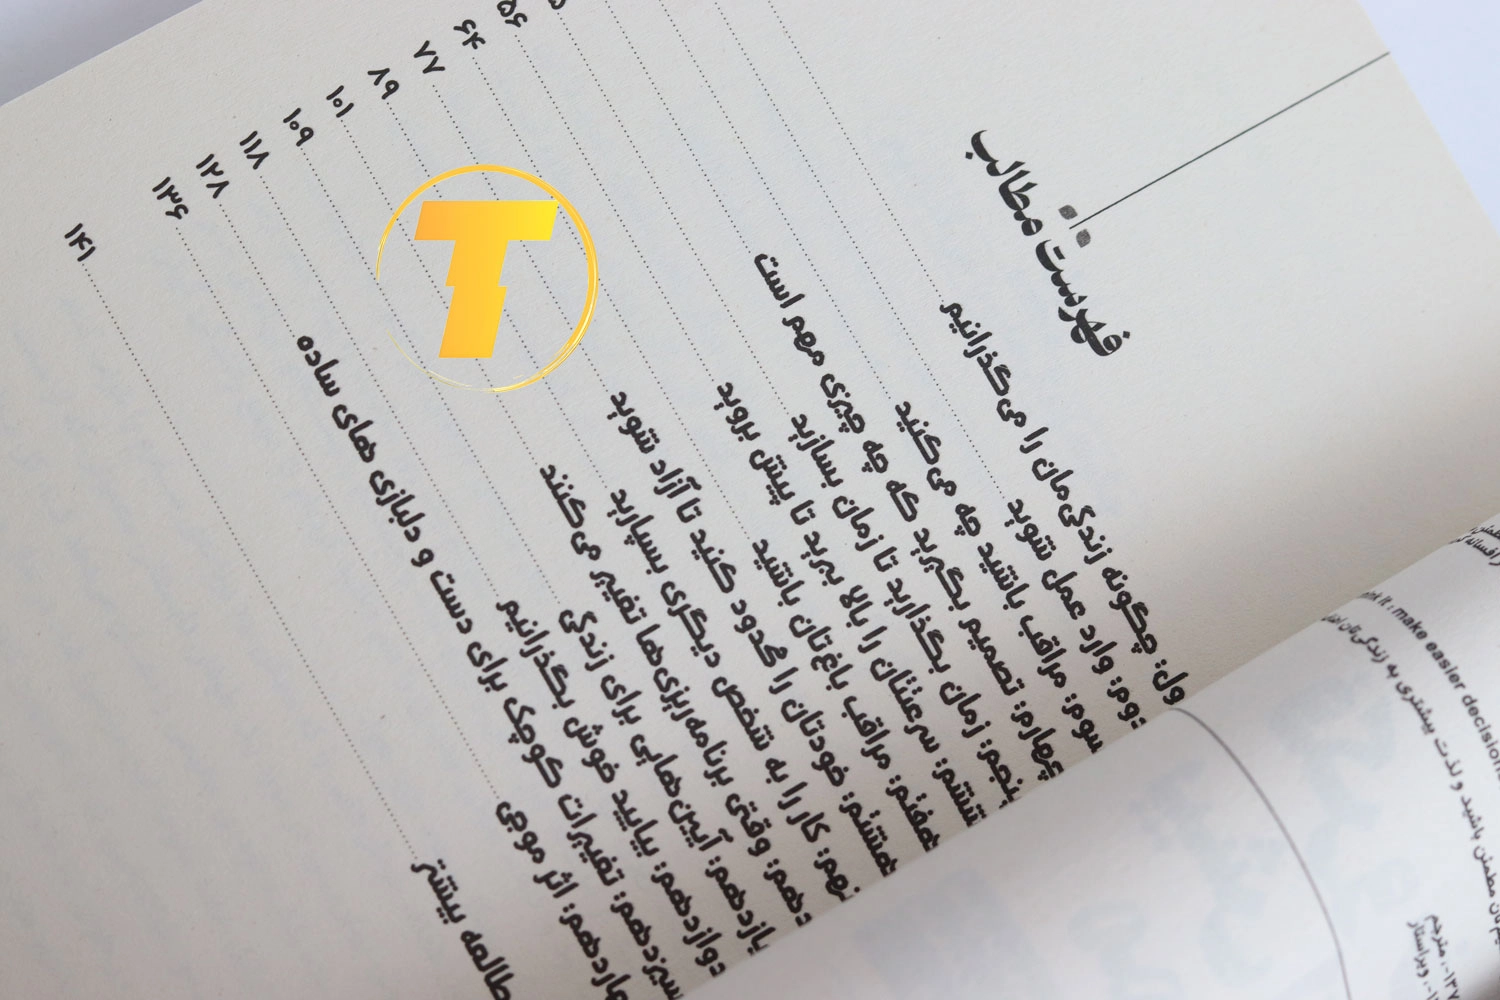 فهرست مطالب
ول: چگونه زندگی‌مان را می‌گذرانیم
دوم: وارد عمل شوید
سوم: مراقب باشید چه می‌کنید
چهارم: تصمیم بگیرید که چه چیزی مهم است
پنجم: زمان بگذارید تا زمان بسازید
ششم: سرعتتان را بالا ببرید تا پیش بروید ۵۶
هفتم: مراقب باغ‌تان باشید ۶۴
هشتم: خودتان را محدود کنید تا آزاد شوید ۷۷
نهم: کار را به شخص دیگری بسپارید ۸۹
دهم: وقتی برنامه‌ریزی‌ها تغییر می‌کنند ۱۰۱
یازدهم: آیین‌هایی برای زندگی ۱۰۹
دوازدهم: بیایید خوش بگذرانیم ۱۱۸
سیزدهم: تغییرات کوچک برای دست و دلبازی های ساده ۱۲۸
هاردهم: اثر موجی ۱۳۶
طالعه بیشتر ۱۴۱
it : make easier decision
مطمئن باشید و لذت بیشتری به زندگی‌تان
مترجم
ویراستار
T